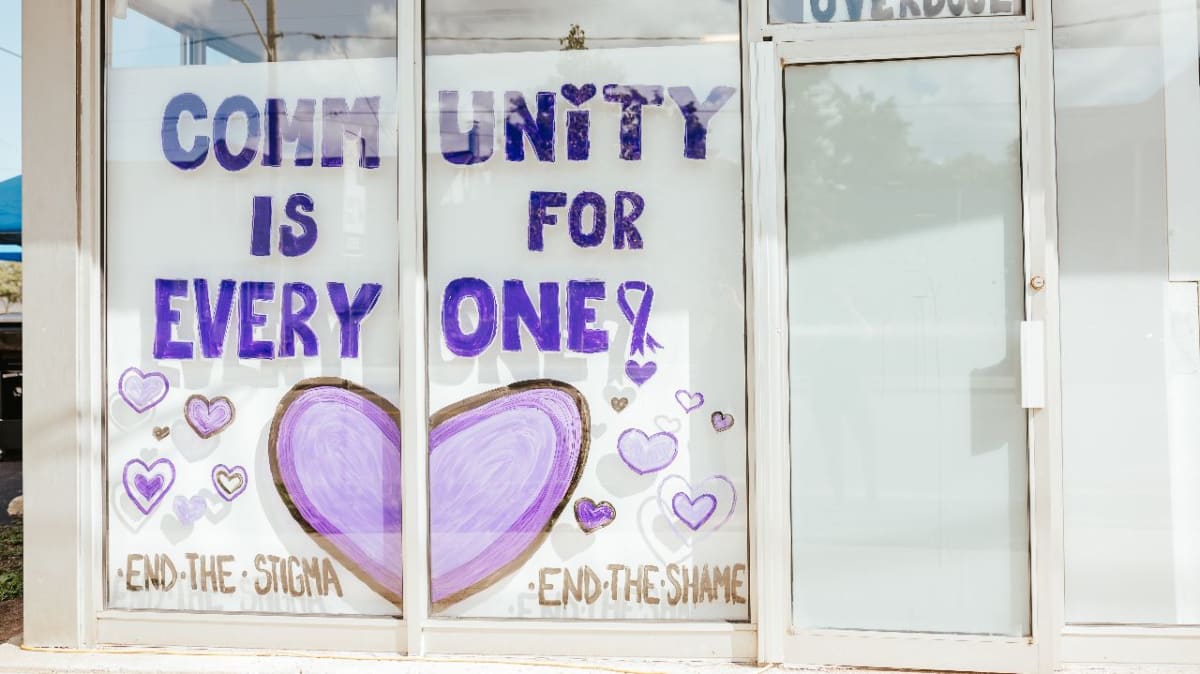 OVERDOSE
COMMUNiTY
IS FOR
EVERYONE
·END·THE·STIGMA
·END·THE·SHAME